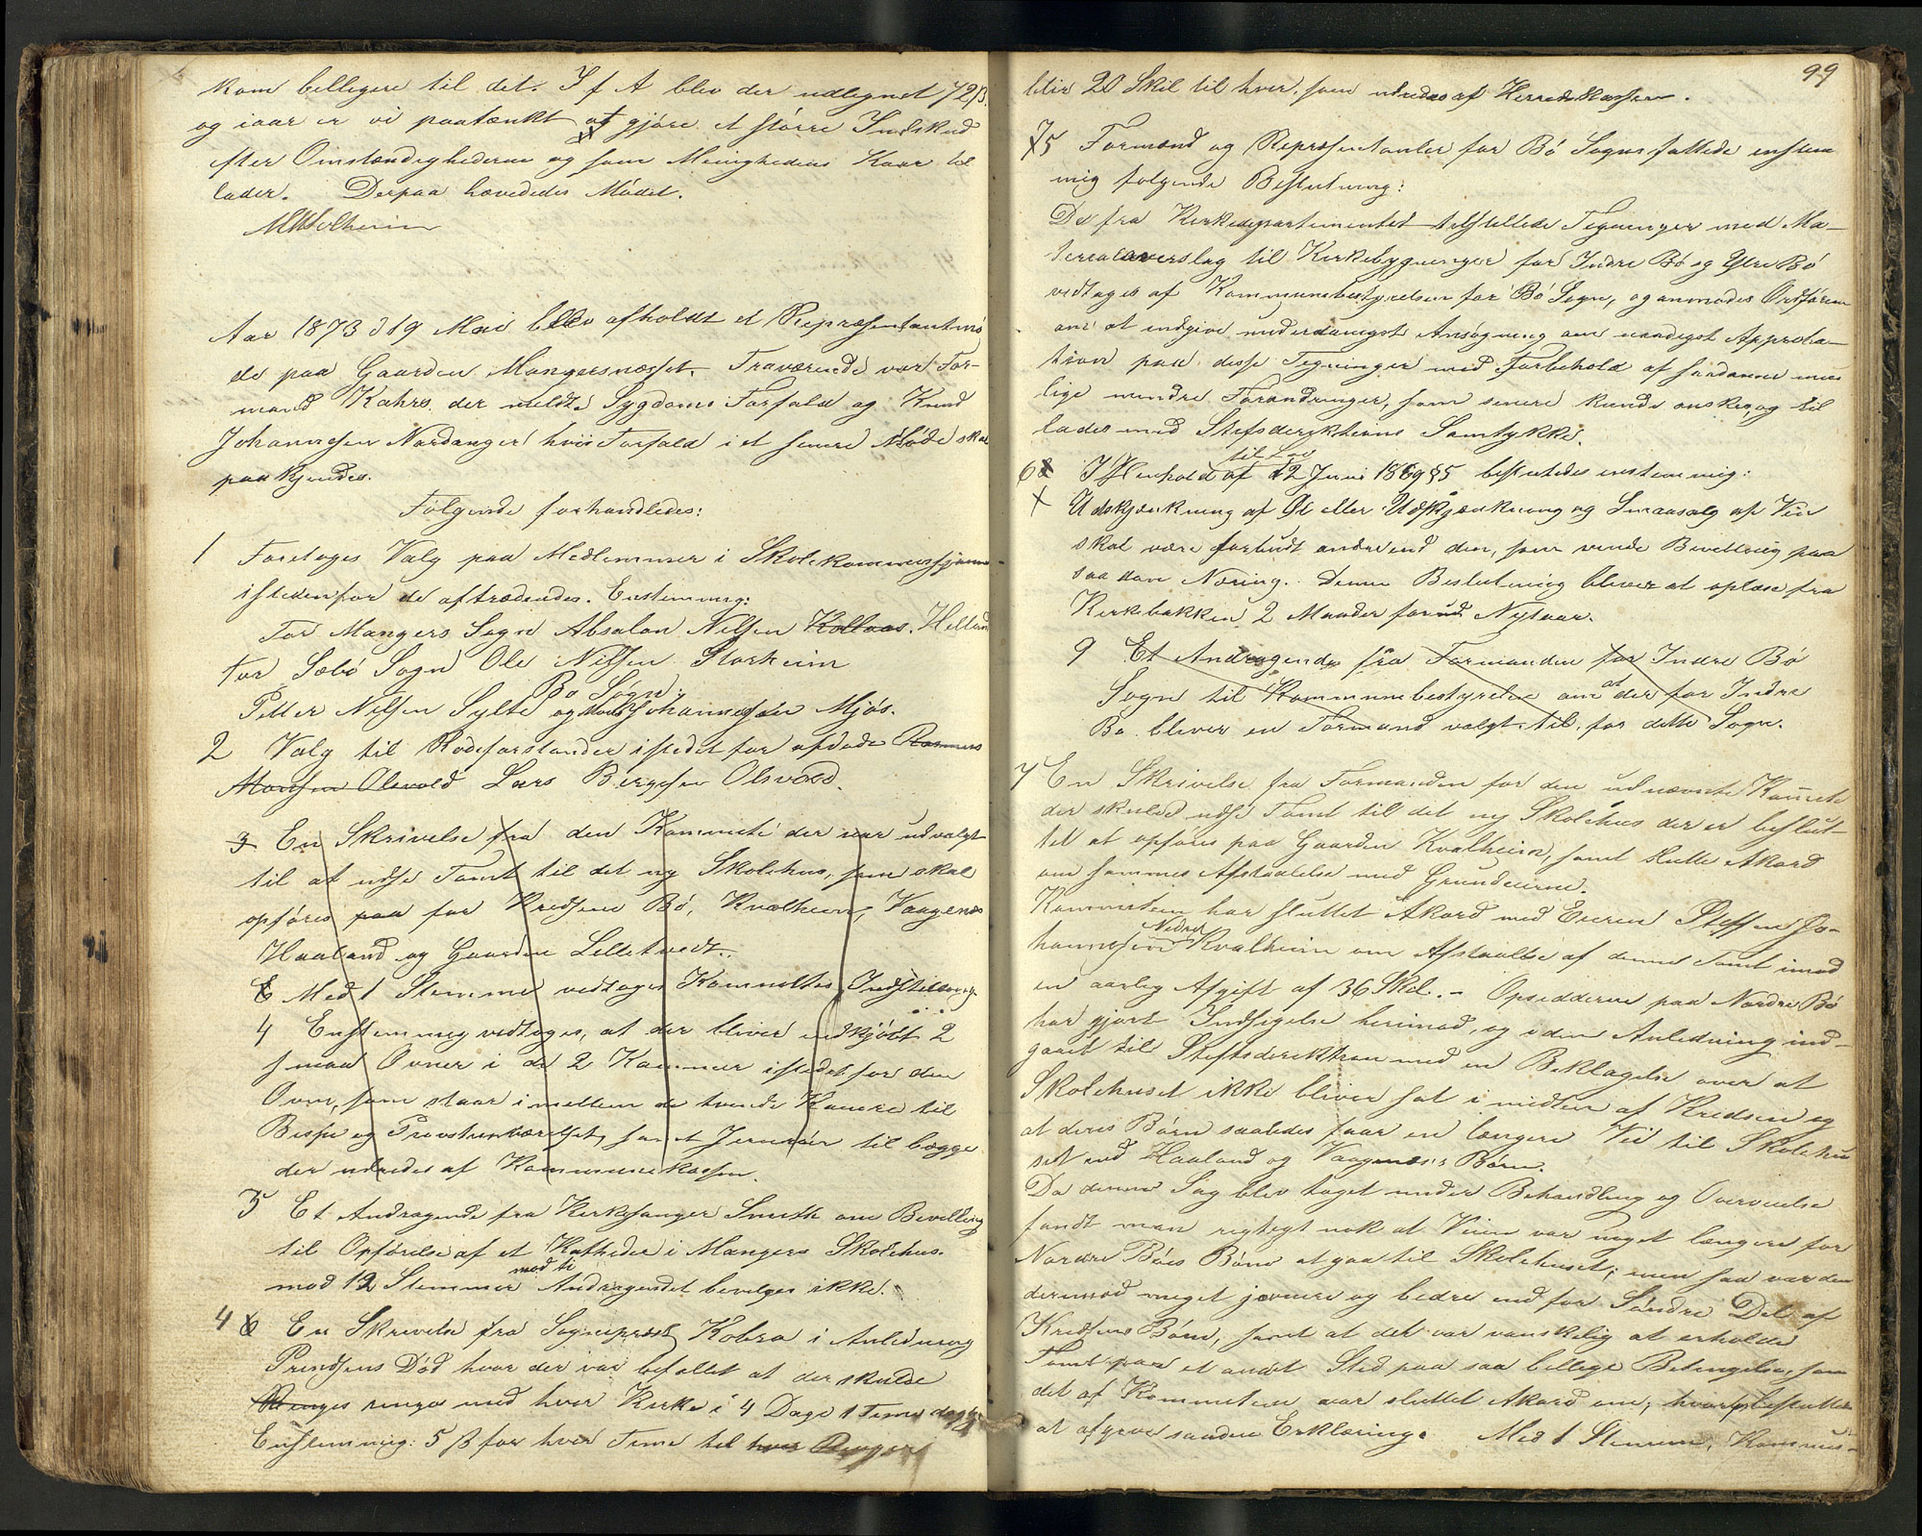 kom billigere til det. I f A blev der udlignet 72 ß
og iaar er vi paatænkt at gjøre et større Indskud
efter Omstændighederne og som Menighedens Kaar til
lader. Derpaa hævedes Mødet.
Aar 1873 d 19 Mai blev afholdt et Repræsentantmø
de paa Gaarden Mangersnæsset. Fraværende var For-
mand Kahrs der meldte Sygdoms Forfald og Knud
Johannesen Nordanger hvis Forfald i et senere Møde skal
paakjendes.
Følgende forhandledes:
1 Foretoges Valg paa Medlemmer i Skolekommissjonen
istedenfor de aftrædende. Enstemmig:
For Mangers Sogn Absalon Nilsen Kollaas. Helland
For Sæbø Sogn Ole Nilsen Storheim
Bø Sogn:
Petter Nilsen Sylte og Mons Johannessen Mjøs.
2 Valg til Rodeforstander istedet for afdøde Rasmus
Monsen Olsvold Lars Bergesen Olsvold.
3 En Skrivelse fra den Kommite der var udvalgt
til at udse Tomt til det ny Skolehus, som skal
opføres paa for Kredsene Bø, Kvalheim, Vaagenæs
Haaland og Gaarden Lilletvedt.
Med 1 Stemme vedtoges Kommiteens Indstilling.
4 Enstemmig vedtoges, at der bliver indkjøbt 2
smaa Ovner i de 2 Kammer istedet for den
Ovn, som staar imellem de tvende Kamre til
Bispe og Provsteværelset, samt Jernrør til begge
der udredes af Kommunekassen.
5 Et Andragende fra Kirkesanger Smith om Bevilling
til Opførelse af et Katheder i Mangers Skolehus.
mod ti
mod 12 Stemmer Andragendet bevilges ikke.
4 6 En Skrivelse fra Sognepræst Kobro i Anledning
Prindsens Død hvor der var befallet at der skulde
Ringes ringe med hver Kirke i 4 Dage 1 Time daglig
Enstemmig: 5 ß for hver Time til hver Ringer
99
blir 20 Skil til hver. som udredes af Herredskassen.
7 5 Formænd og Repræsentanter for Bø Sogn fattede enstem
mig følgende Beslutning:
De fra Kirkedepartementet tilstillede Tegninger med Ma-
terialoverslag til Kirkebygninger for Indre Bø og Ytre Bø
vedtages af Kommunebestyrelsen for Bø Sogn, og anmodes Ordføreren
om at indgive underdanigst Ansøgning om naadigst Approba-
tion paa disse Tegninger med Forbehold af saadanne mu
lige mindre Forandringer, som senere kunde ønskes, og til
lades med Stifsdirektions Samtykke.
til Lov
6 8 I Henhold af 12 Juni 1869 § 5 besluttedes enstemmig:
X Udskjænkning af Øl eller Udskjænkning og Smaasalg af Vin
skal være forbudt andre end dem, som vinde Bevilling paa
saadan Næring. Denne Beslutning bliver at oplæse fra
Kirkebakken 2 Maander forud Nytaar.
9 Et Andragende fra Formanden for Indre Bø
Sogn til Kommunebestyrelse om at der for Indre
Bø bliver en Formand valgt til for dette Sogn.
7 En Skrivelse fra Formanden for den udnævnte Komite
der skulde udse Tomt til det ny Skolehus der er beslut-
tet at opføres paa Gaarden Kvalheim, samt slutte Akord
om sammes Afstaaelse med Grundeierne.
Kommiteen har sluttet Akord med Eieren Steffen Jo-
Nedre
hannesen Kvalheim om Afstaaelse af denne Tomt imod
en aarlig Afgift af 36 Skil. - Opsidderne paa Nordre Bø
har gjort Indsigelse herimod, og i den Anledning ind-
gaaet til Stiftsdirektion med en Beklagelse over at
Skolehuset ikke bliver sat i midten af Kredsen og
at deres Børn saaledes faar en længere Vei til Skolehu
set end Haaland og Vaagenæs's Børn.
Da denne Sag blev taget under Behandling og Overveielse
fandt man rigtigt nok at Veien var noget længere for
Nordre Bøes Børn at gaa til Skolehuset; men saa var den
derimod meget jevnere og bedre end for Søndre Del af
Kredsens Børn, samt at det var vanskelig at erholde
Tomt paa et andet Sted paa saa billige Betingelser, som
det af Kommiteen var sluttet Akord om; hvorfor besluttedes
at afgive saadan Erklæring. Med 1 Stemme, Kommis-